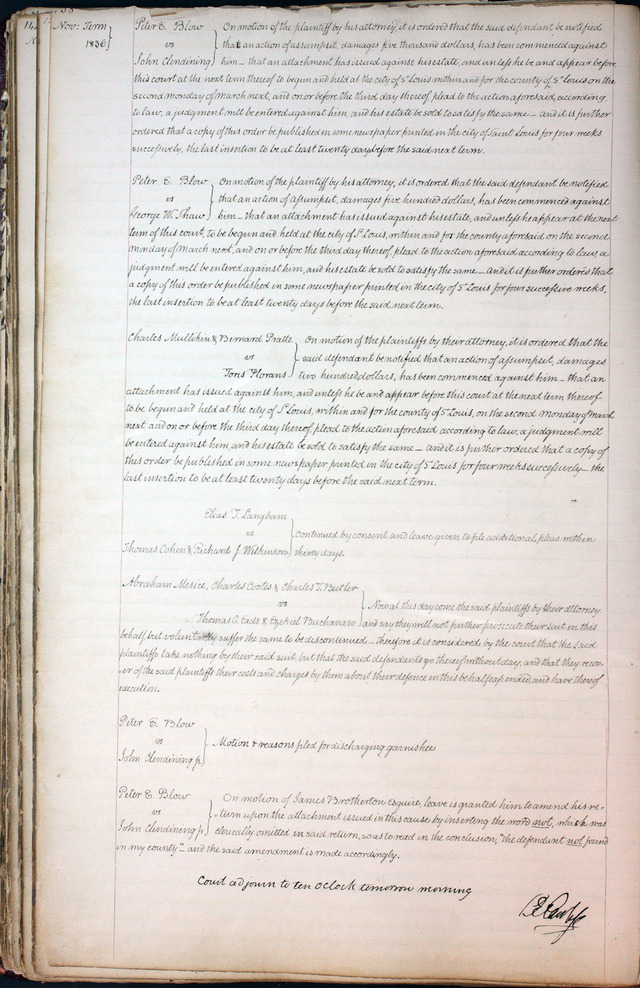 Nov: Term
1836
Peter E. Blow
vs
John Clendining
On motion of the plaintiff by his attorney, it is ordered that the said defendant be notified
that an action of assumpsit, damages five thousand dollars, has been commenced against
him – that an attachment has issued against his estate, and unless he be and appear before
this court at the next term thereof to begun and held at the city of St Louis within and for the county of St Louis on the
second monday of March next, and on or before the third day thereof, plead to the action aforesaid, according
to law, a judgment will be entered against him, and his estate be sold to satisfy the same – and it is further
ordered that a copy of this order be published in some newspaper printed in the city of Saint Louis for four weeks
successively, the last insertion to be at least twenty days before the said next term.
Peter E. Blow
vs
George W. Shaw
On motion of the plaintiff by his attorney, it is ordered that the said defendant be notified
that an action of assumpsit, damages five hundred dollars, has been commenced against
him – that an attachment has issued against his estate, and unless he appear at the next
term of this court, to be begun and held at the city of St Louis, within and for the county aforesaid on the second
monday of March next, and on or before the third day thereof, plead to the action aforesaid according to law, a
judgment will be entered against him, and his estate be sold to satisfy the same – and it is further ordered that
a copy of this order be published in some newspaper printed in the city of St Louis for four successive weeks,
the last insertion to be at least twenty days before the said next term.
Charles Mullikin & Bernard Pratte
vs
Toris Florans
On motion of the plaintiffs by their attorney, it is ordered that the
said defendant be notified that an action of assumpsit, damages
two hundred dollars, has been commenced against him – that an
attachment has issued against him, and unless he be and appear before this court at the next term thereof
to be begun and held at the city of St Louis, within and for the county of St Louis, on the second monday of March
next and on or before the third day thereof, plead to the action aforesaid according to law, a judgment will
be entered against him, and his estate be sold to satisfy the same – and it is further ordered that a copy of
this order be published in some newspaper printed in the city of St Louis for four weeks successively – the
last insertion to be at least twenty days before the said next term.
Elias T. Langham
vs
Thomas Cohen & Richard J. Wilkinson
Continued by consent, and leave given to file additional pleas within
thirty days.
Abraham Mesice, Charles Cootes & Charles T. Butler
vs
Thomas C. Eads & Ezekiel Buchanan
Now at this day come the said plaintiffs by their attorney
and say they will not further prosecute their suit in this
behalf, but voluntarily suffer the same to be discontinued – therefore it is considered by the court that the said
plaintiffs take nothing by their said suit, but that the said defendants go thereof without day, and that they reco-
ver of the said plaintiffs their costs and charges by them about their defence in this behalf expended, and have thereof
execution.
Peter E. Blow
vs
John Clendining jr
Motion & reasons filed for discharging garnishee
Peter E. Blow
vs
John Clendining jr
On motion of James Brotherton Esquire, leave is granted him to amend his re-
turn upon the attachment issued in this cause by inserting the word not, which was
clerically omitted in said return, so as to read in the conclusion, "the defendant not found
in my county" – and the said amendment is made accordingly.
Court adjourn to ten oClock tomorrow morning